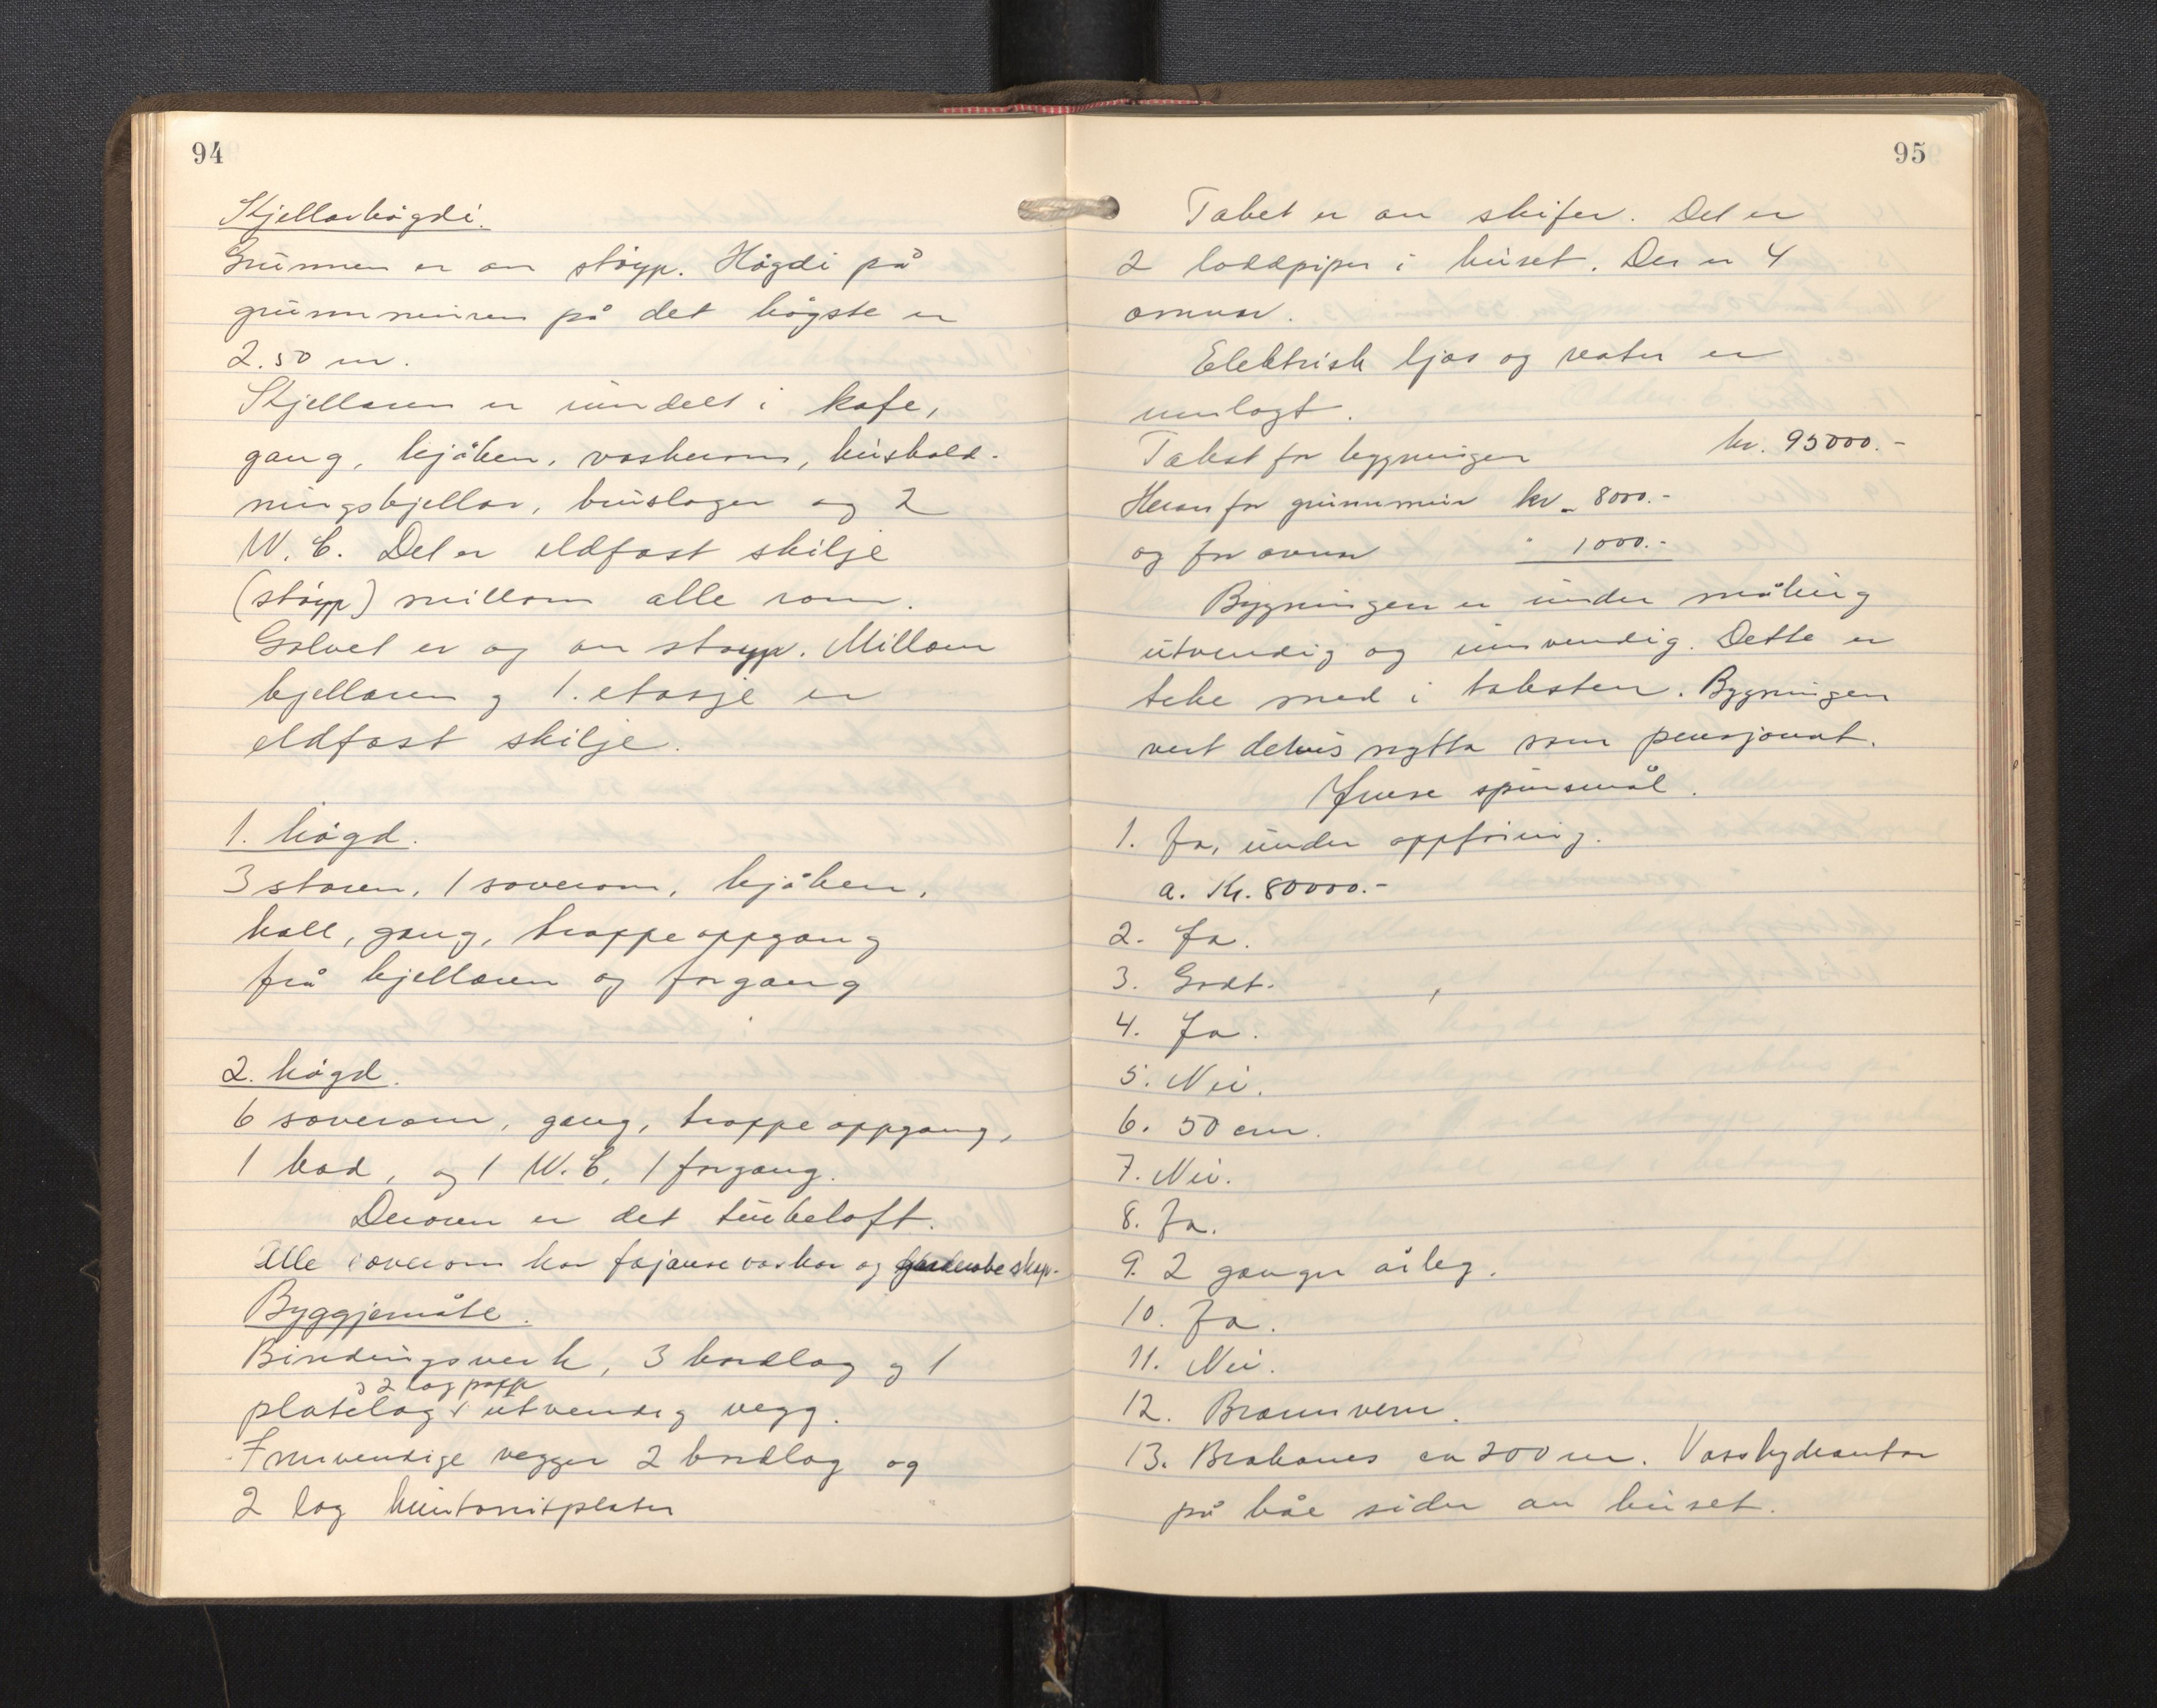 94
Kjellarhögdi.
Grunnen er av støyp. Högdi på
grunnmuren på det högste er
2.50 m.
Kjellaren er inndelt i kafe,
gang, kjöken, vaskerom, hushold-
ningskjellar, buslager og 2
W.C. Det er eldfast skilje
(støyp) millom alle rom.
Golvet er og av støyp. Millom
kjellaren og 1. etasje er
eldfast skilje.
1. högd.
3 stoven, 1 soverom, kjöken,
hall, gang, trappeoppgang
frå kjellaren og forgang
2. högd.
6 soverom, gang, trappeoppgang,
1 bad, og 1 W.C, 1 forgang.
Derover er det turkeloft.
Alle soverom har fajanse vaskar og garderobeskap.
Byggjemåte.
Bindingsverk, 3 bordlag og 1
og 2 lag papp
platelag i utvendig vegg.
Innvendige vegger 2 bordlag og
2 lag huntonitplater
95
Taket er av skifer. Det er
2 loddpiper i huset. Der er 4
omnar.
Elektrisk ljos og vatn er
innlagt.
Takst for bygningen kr. 95000.-
Herav for grunnmur kr. 8000.-
og for ovnar " 1000.-
Bygningen er under måling
utvendig og innvendig. Dette er
teke med i taksten. Bygningen
vert delvis nytta som pensjonat.
Ymse spursmål.
1. Ja, under oppföring.
a. Kr. 80000.-
2. Ja.
3. Godt.
4. Ja.
5. Nei.
6. 50 cm.
7. Nei.
8. Ja.
9. 2 ganger årleg.
10. Ja.
11. Nei.
12. Brannvern.
13. Brakanes ca 200 m. Vasshydrantar
på båe sider av huset.